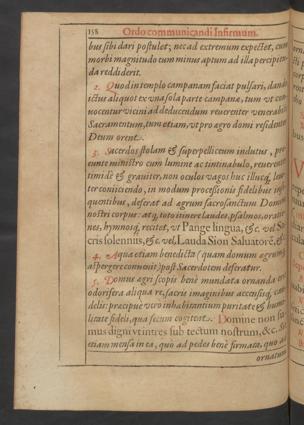 158 Ordo communicandi Infirmum.
bus sibi dari postulet; nec ad extremum expectet, cum
morbi magnitudo eum minus aptum ad illa percipienda
reddiderit.
2. Quod in templo campanam faciat pulsari, dando
ictus aliquot ex una sola parte campanæ, tum ut con
nocentur vicini ad deducendum reuerenter venerabile
Sacramentum, tum etiam, vt pro agro domi resident
Deum orent.
3. Sacerdos stolam & superpelliceum indutus, præ
eunte ministro cum lumine ac tintinabulo, reuerenter
timidè & grauiter, non oculos vagos huc illucq́; leui
ter conijciendo, in modum processionis fidelibus
quentibus, deferat ad ægrum sacrosanctum Domini
nostri corpus: atq́; toto itinere laudes, psalmos, oratio-
nes, hymnosq́; recitet, vt Pange lingua, & c. vel Sa
cris solennijs, & c. vel, Lauda Sion Saluatorē, &
4. Aqua etiam benedicta (quam domum ægrum
aspergere conuenit) post Sacerdotem deferatur.
5. Domus ægri scopis bene mundata ornanda
odorifera aliqua re, sacris imaginibus accensisq́; can
delis: præcipue verò inhabitantium puritate & humi
litate fideli, qua secum cogitent. Domine non su-
mus digni vt intres sub tectum nostrum, & c. Sit
etiam mensa in ea, quo ad pedes bene firmata, quo ad
ornatum